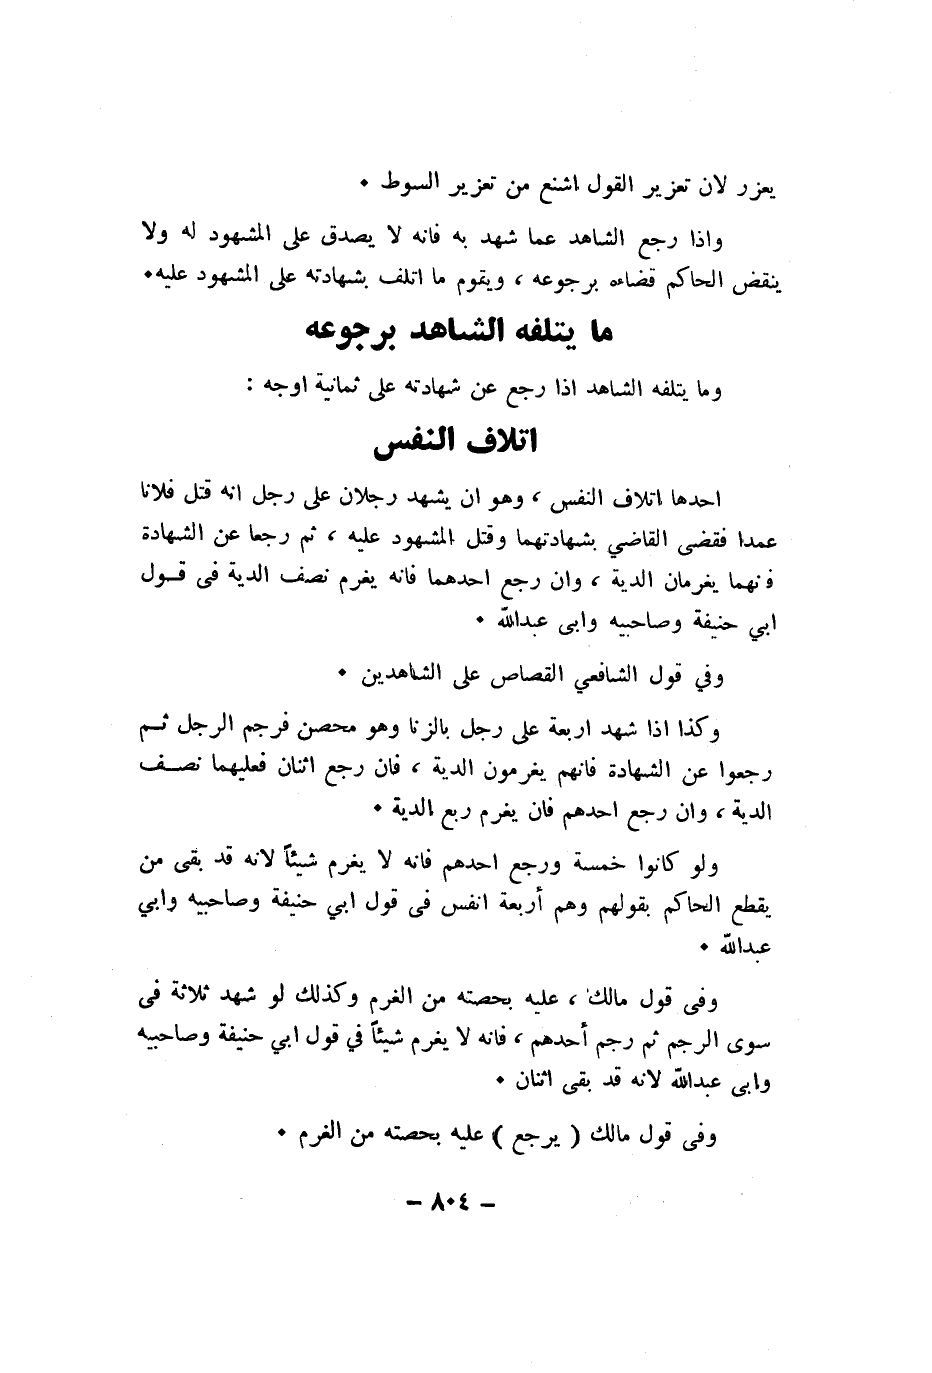 يعزر لان تعزير القول اشنع من تعزير السوط ٠
واذا رجع الشاهد عما شهد به فانه لا يصدق على المشهود له ولا
ينقض الحاكم قضاءه برجوعه ، ويقوم ما اتلف بشهادته على المشهود عليه٠
ما يتلفه الشاهد برجوعه
وما يتلفه الشاهد اذا رجع عن شهادته على ثمانية اوجه :
اتلاف النفس
احدها اتلاف النفس ، وهو ان يشهد رجلان على رجل انه قتل فلانا
عمدا فقضى القاضي بشهادتهما وقتل المشهود عليه ، ثم رجعا عن الشهادة
فنهما يغرمان الدية ، وان رجع احدهما فانه يغرم نصف الدية فى قـول
ابي حنيفة وصاحبيه وابى عبدالله ٠
وفي قول الشافعي القصاص على الشاهدين ٠
وكذا اذا شهد اربعة على رجل بالزنا وهو محصن فرجم الرجل ثـم
رجعوا عن الشهادة فانهم يغرمون الدية ، فان رجع اثنان فعليهما نصـف
الدية ، وان رجع احدهم فان يغرم ربع الدية ٠
ولو كانوا خمسة ورجع احدهم فانه لا يغرم شيئاً لانه قد بقى من
يقطع الحاكم بقولهم وهم أربعة انفس فى قول ابي حنيفة وصاحبيه وابي
عبدالله ٠
وفى قول مالك ، عليه بحصته من الغرم وكذلك لو شهد ثلاثة فى
سوى الرجم ثم رجم أحدهم ، فانه لا يغرم شيئاً في قول ابي حنيفة وصاحبيه
وابى عبدالله لانه قد بقى اثنان ٠
وفى قول مالك ( يرجع ) عليه بحصته من الغرم ٠
– ٨٠٤ –